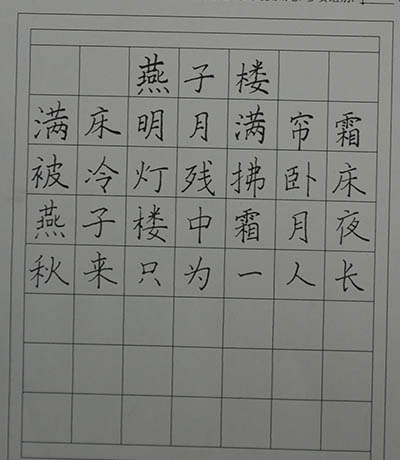 燕子楼
满床明月满帘霜
被冷灯残拂卧床
燕子楼中霜月夜
秋来只为一人长